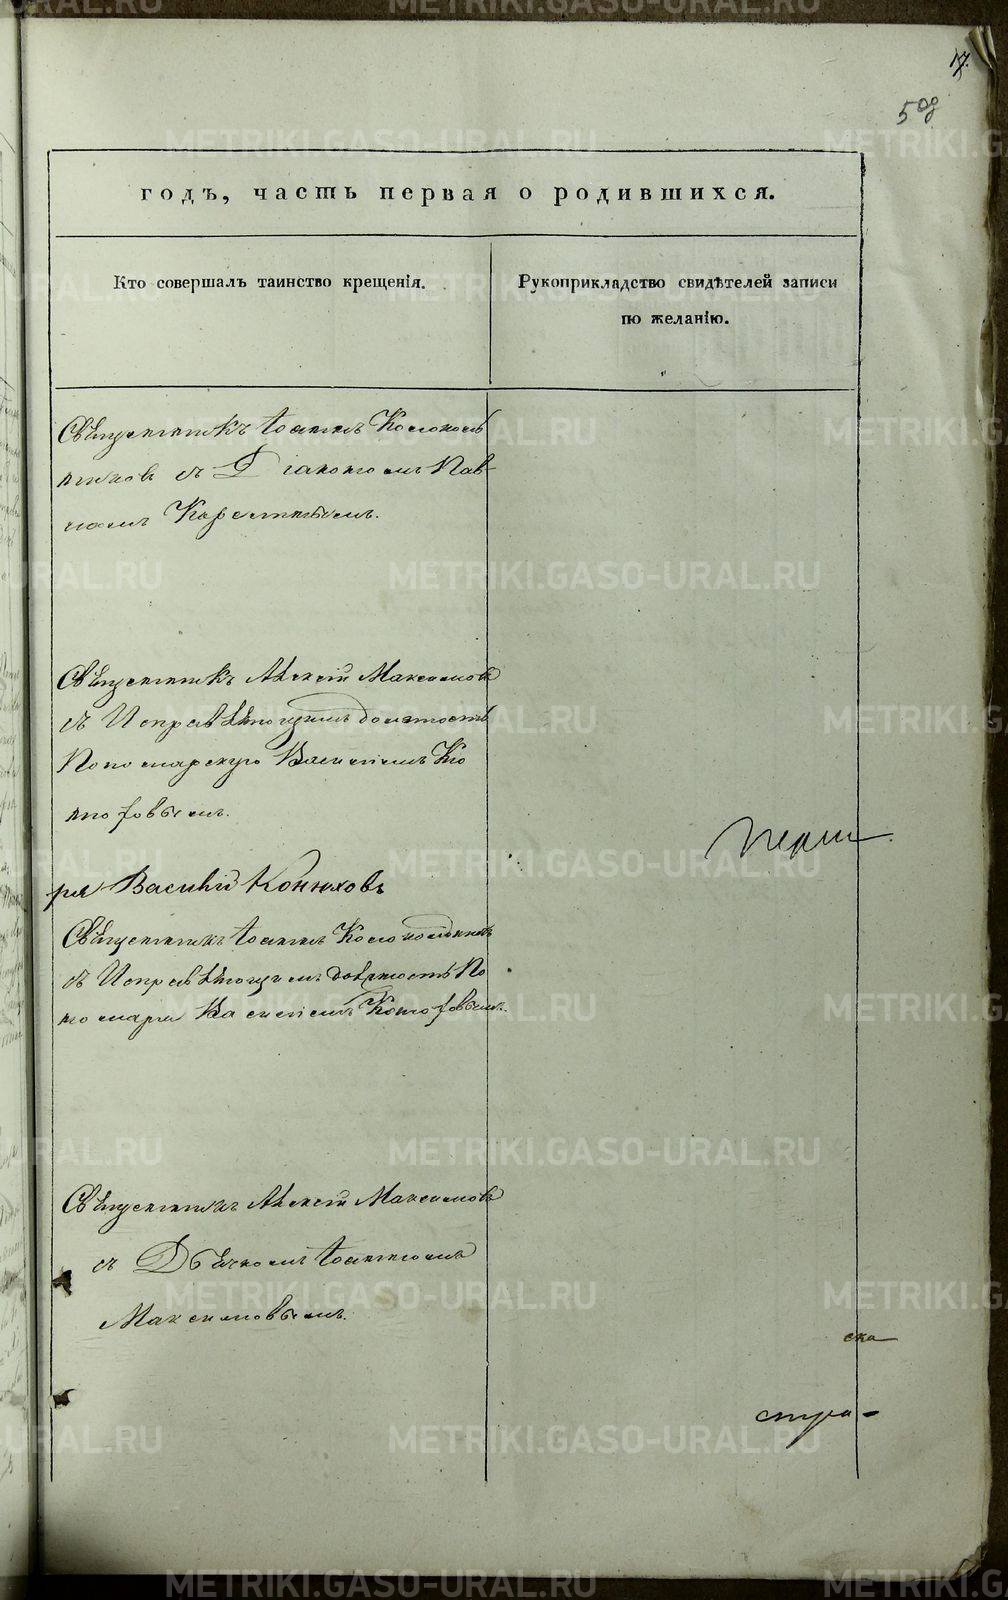 17.
508
годъ, часть первая о родившихся.
Кто совершалъ таинство крещенія.
Рукоприкладство свидѣтелей записи
по желанію.
Священникъ Іоаннъ Колоколь
никовъ съ Діакономъ Пав-
ломъ
Священникъ Алексій Максимовъ
съ Исправляющимъ должность
Пономарскую Василіемъ Ко
нюховымъ.
ря Василій Конюховъ
Священникъ Іоаннъ Колокольник
съ Исправляющимъ должность По
номаря Василіемъ Конюховым.
Священникъ Алексій Максимовъ
съ Дьячкомъ Іоанномъ
Максимовымъ.
ска
стра-
METRIKI.GASO-URAL.RU